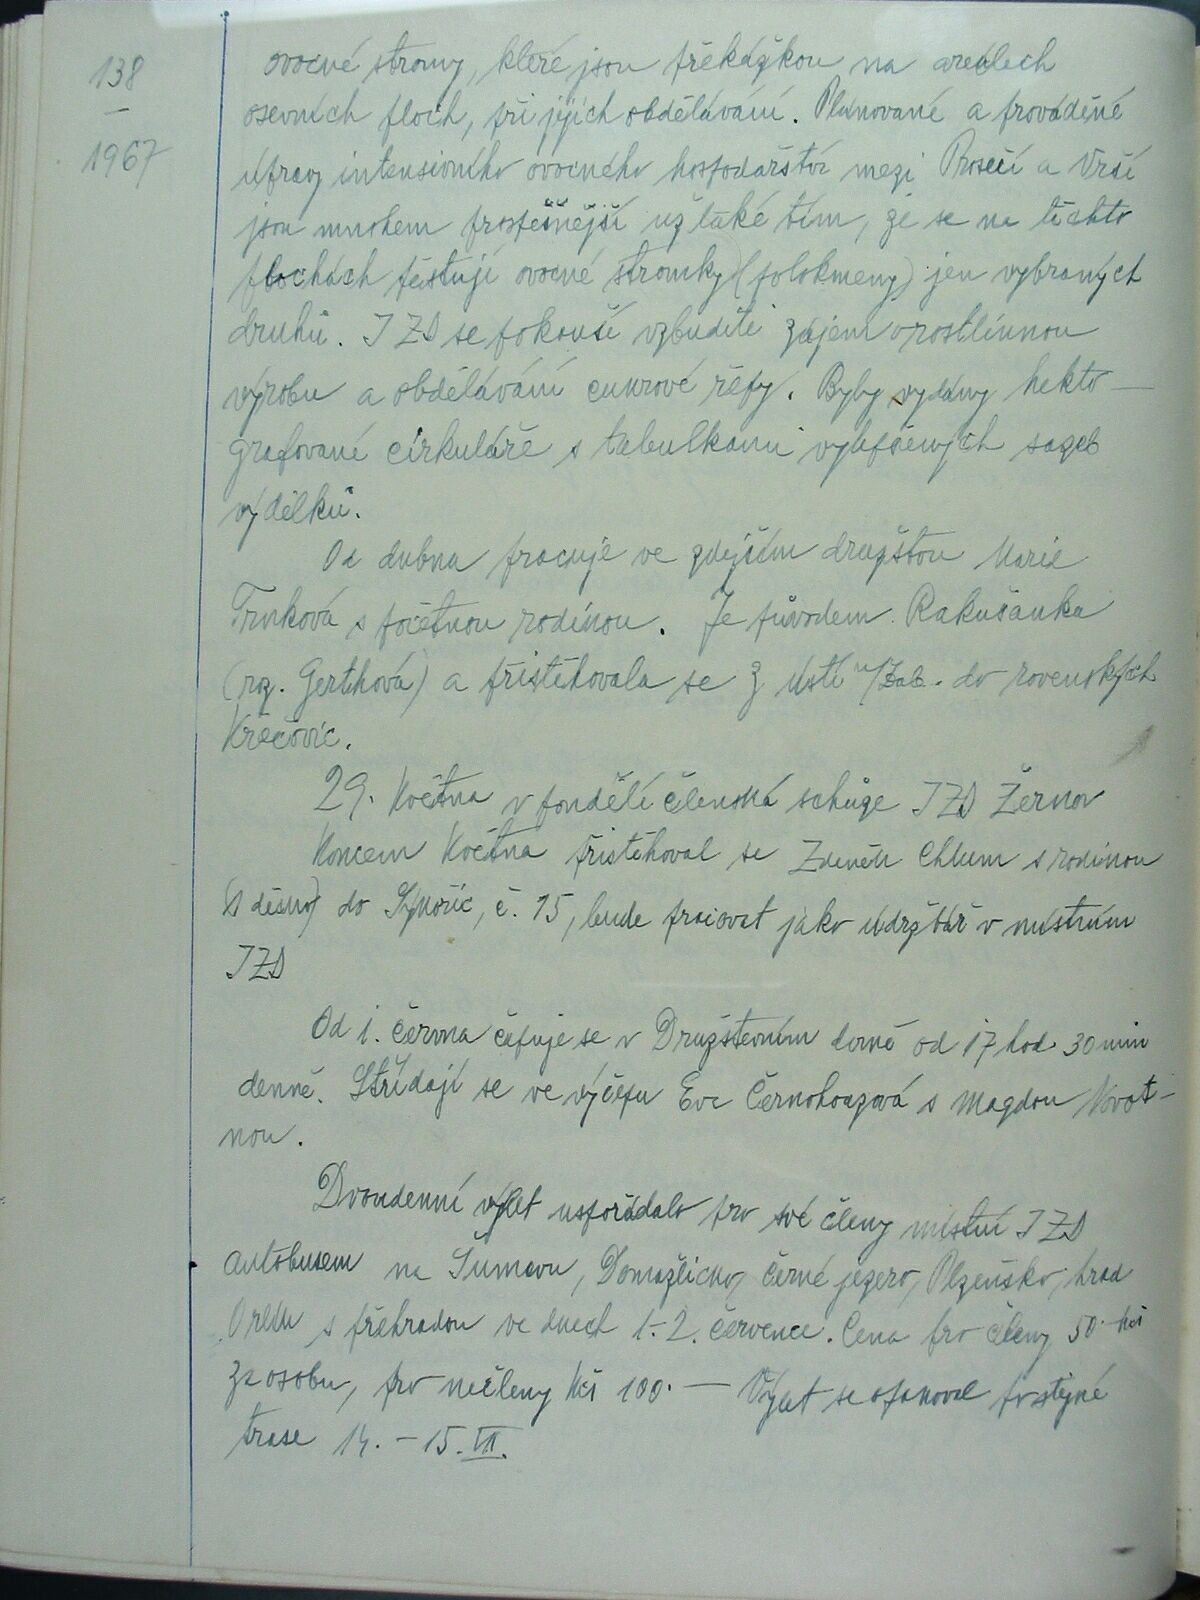 138
—
1967
ovocné stromy, které jsou překážkou na areálech
osevních ploch, při jejich obdělávání. Plánované a prováděné
úpravy intensivního ovocného hospodářství mezi Prosečí a Vrší
jsou mnohem prospěšnější už také tím, že se na těchto
plochách pěstují ovocné stromky (polokmeny) jen vybraných
druhů. JZD se pokouší vzbuditi zájem o rostlinnou
výrobu a obdělávání cukrové řepy. Byly vydány hekto-
grafované cirkuláře s tabulkami vylepšených sazeb
výdělků.
Od dubna pracuje ve zdejším družstvu Marie
Trnková s početnou rodinou. Je původem Rakušanka
(roz. Gerthová) a přistěhovala se z Ústí n/Lab. do rovenských
Křečovic.
29. Května v pondělí členská schůze JZD Žernov
Koncem Května přistěhoval se Zdeněk Chlum s rodinou
do Sýkořic, č. 15, bude pracovat jako údržbář v místním
JZD
Od 1. června čepuje se v Družstevním domě od 17 hod 30 min
denně. Střídají se ve výčepu Eva Černohouzová s Magdou Novot-
nou.
Dvoudenní výlet uspořádalo pro své členy místní JZD
autobusem na Šumavu, Domažlicko, Černé jezero, Plzeňsko, hrad
Orlík s přehradou ve dnech 1.-2. července. Cena pro členy 50.- Kčs
za osobu, pro nečleny Kčs 100.— Výlet se opakoval po stejné
trase 14.-15. VII.